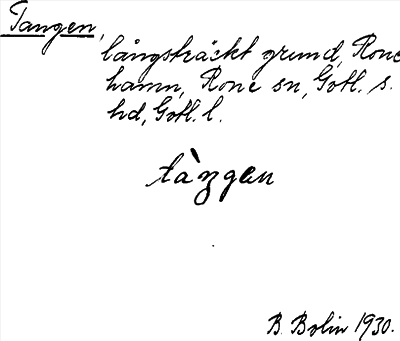 Tangen,
långsträckt grund, Rone
hamn, Rone sn, Gotl. s.
hd, Gotl. l.
tàŋgen
B. Bolin 1930.